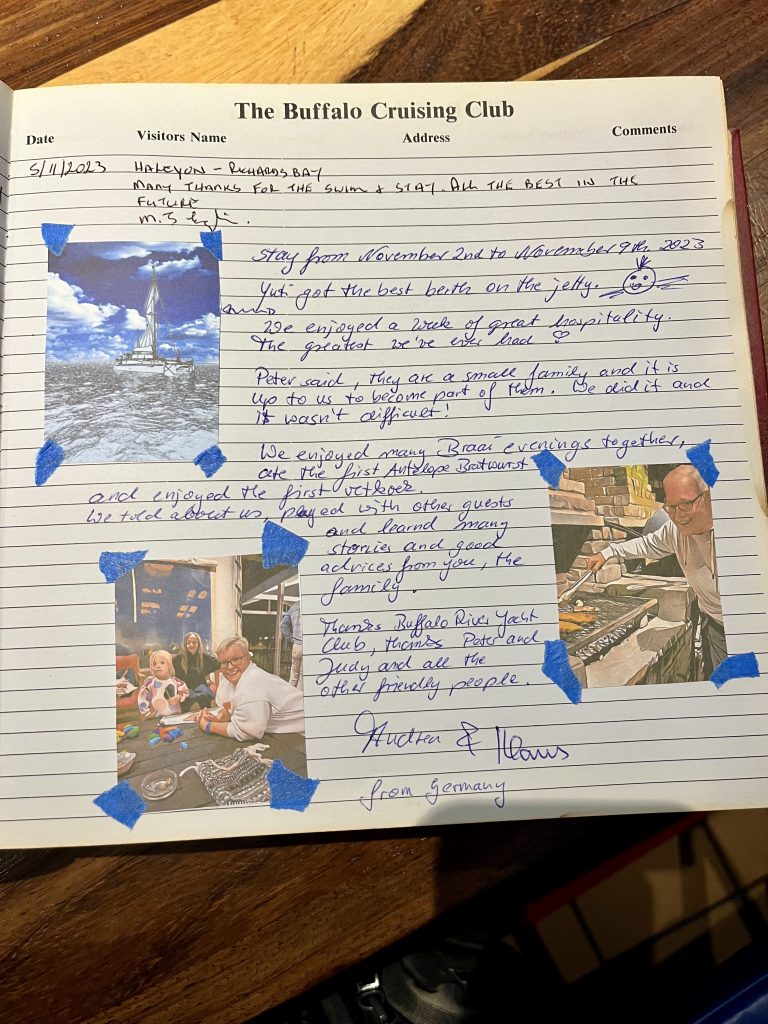 The Buffalo Cruising Club
Date Visitors Name Address Comments
5/11/2023 HALCYON – RICHARDS BAY
MANY THANKS FOR THE SWIM & STAY. ALL THE BEST IN THE
FUTURE
Stay from November 2nd to November 9th 2023
Yuti got the best berth on the jetty.
We enjoyed a week of great hospitality.
The greatest we've ever had ♡
Peter said, they are a small family and it is
up to us to become part of them. We did it and
it wasn't difficult!
We enjoyed many Braai evenings together,
ate the first Antelope Bratwurst
and enjoyed the first vetkoek.
We told about us, played with other guests
and learnd many
stories and good
advices from you, the
family.
Thanks Buffalo River Yacht
Club, thanks Peter and
Judy and all the
other friendly people.
Andrea & Klaus
from Germany